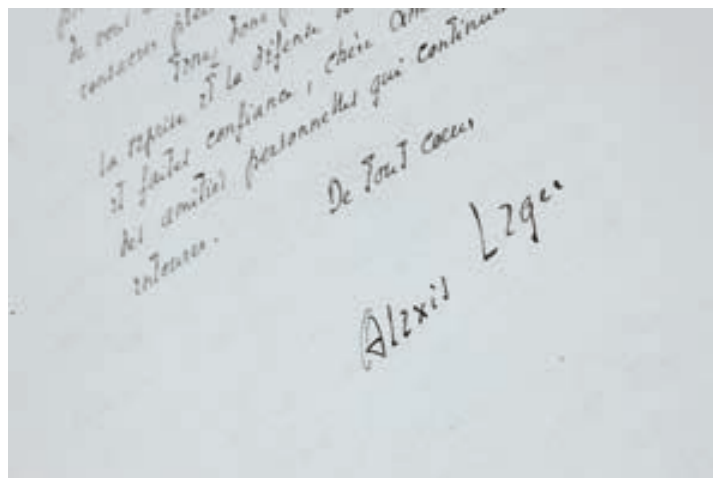 de vous
consacrer
donc
la reprise et la défense
et faites confiance, chère
des amitiés personnelles qui continuent
entourer.
De tout cœur
Alexis Leger